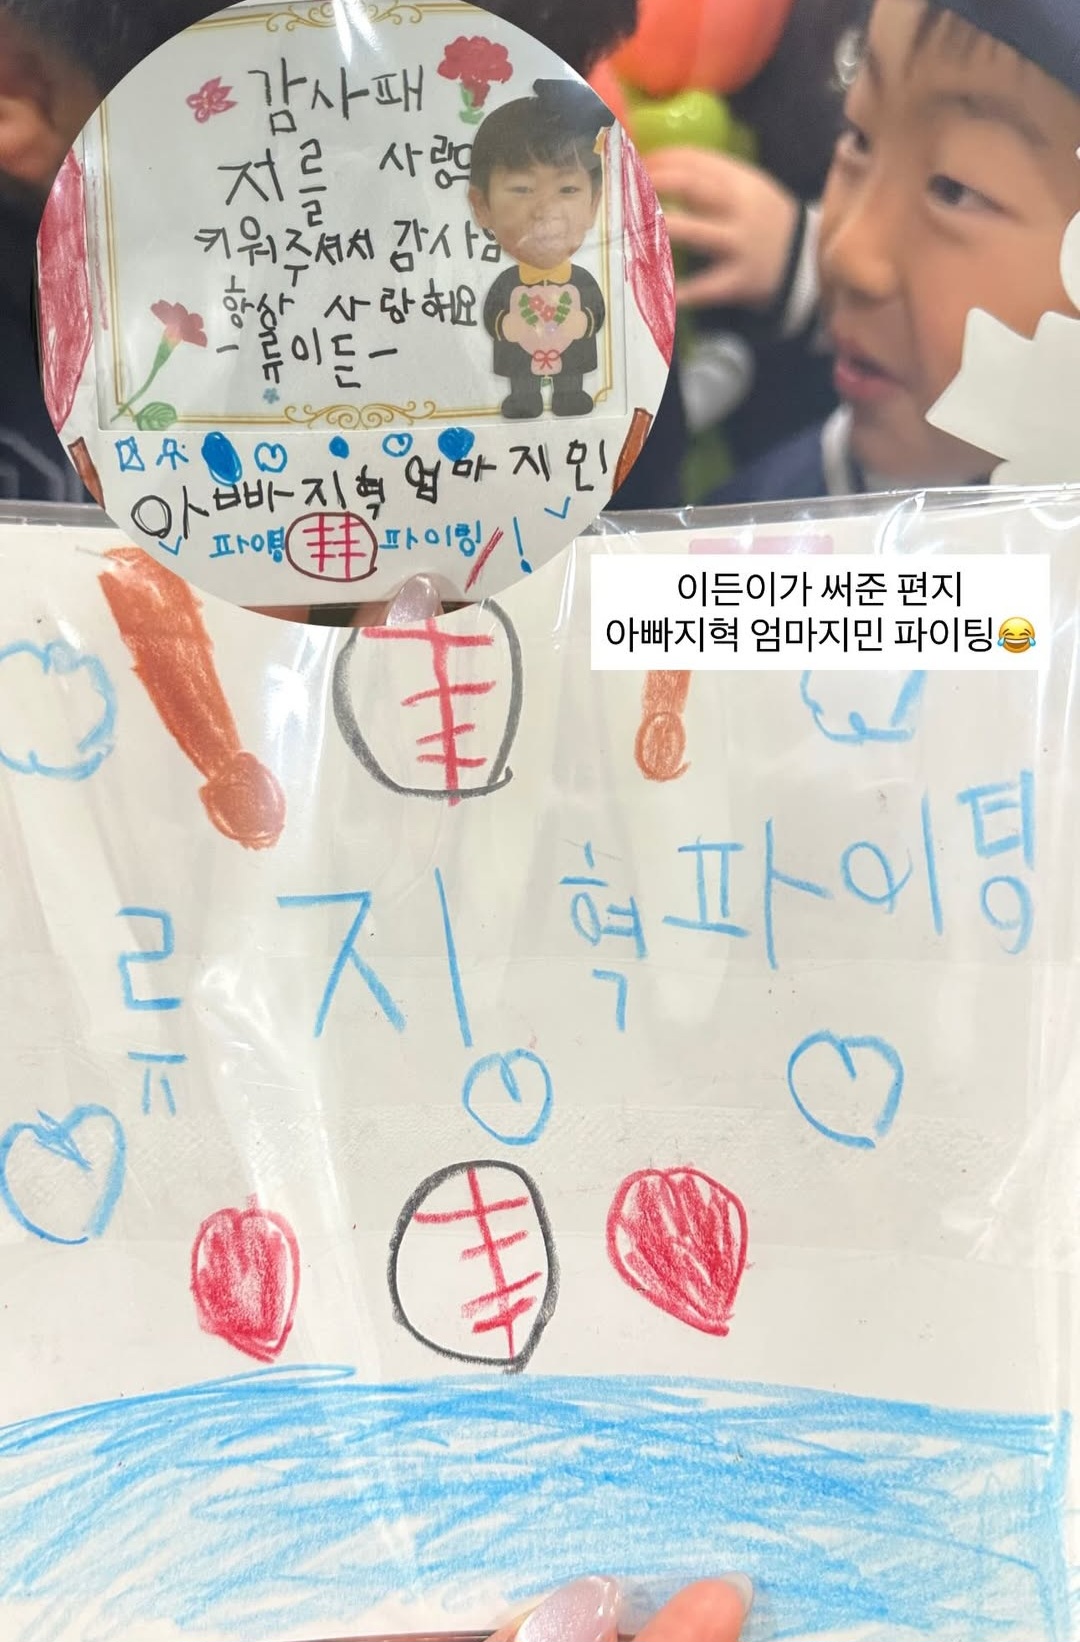 감사패
저를 사랑으
키워주셔서 감사합
항상 사랑해요
- 류이든 -
아빠지혁 엄마지민
파이팅 파이팅!
이든이가 써준 편지
아빠지혁 엄마지민 파이팅😂
류지혁파이팅